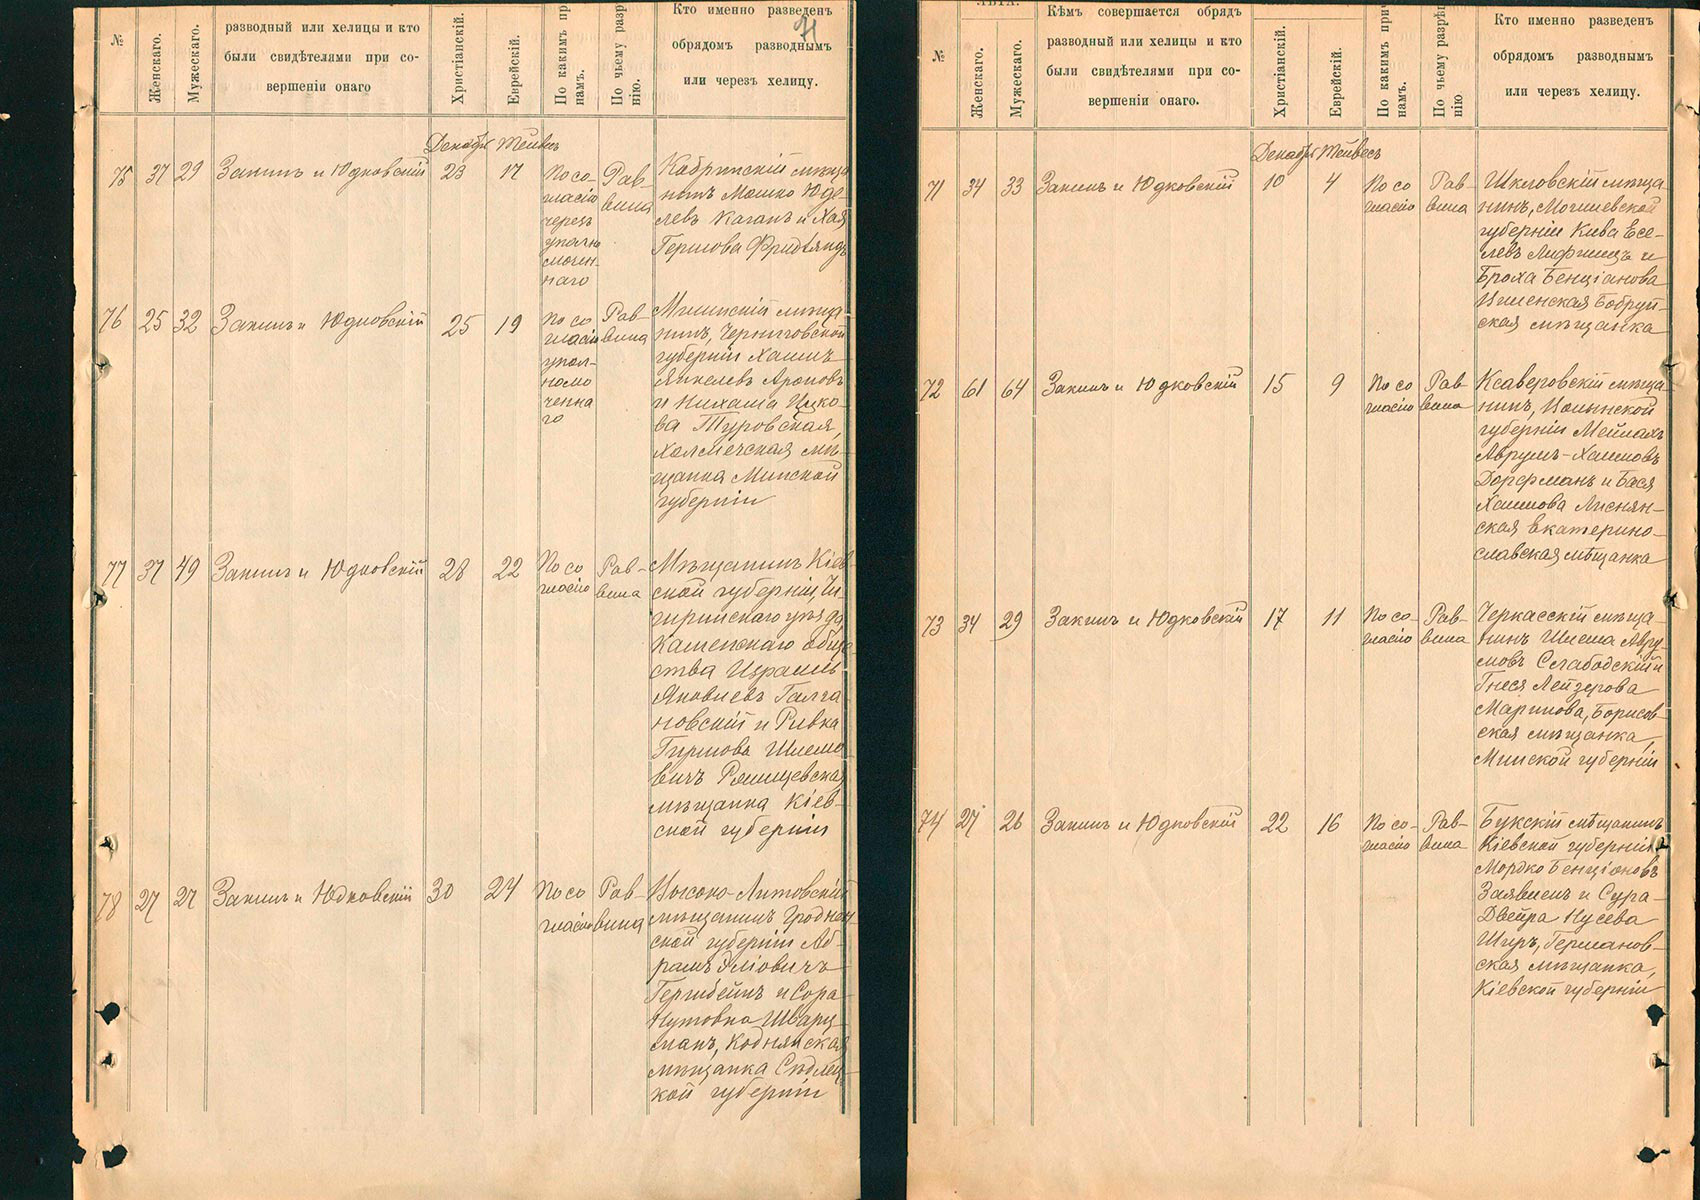 №
Женскаго.
Мужескаго.
разводный или хелицы и кто
были свидѣтелями при со-
вершеніи онаго
Христіанскій.
Еврейскій.
По какимъ при
намъ.
По чьему разр
нію.
Кто именно разведенъ
обрядомъ разводнымъ
или черезъ хелицу.
71
Декабрь Тейвесъ
75 37 29 Закинъ и Юдковскій 23 17
По со-
гласію
черезъ
уполно
мочен-
наго
Рав-
вина
Кобринскій мѣща
нинъ Мошко Юде-
левъ Каганъ и Хая
Гершова Фридляндъ
76 25 32 Закинъ и Юдковскій 25 19
По со
гласію
упол-
номо
ченна
го
Рав-
вина
Мглинскій мѣща
нинъ, Черниговской
губерніи Хаимъ
Янкелевъ Ароновъ
и Нихама Ицко-
ва Туровская,
Холмечская мѣ-
щанка Минской
губерніи
77 37 49 Закинъ и Юдковскій 28 22
По со
гласію
Рав-
вина
Мѣщанинъ Кіев-
ской губерніи, Чи-
гиринскаго уѣзда,
Каменскаго обще-
ства Израиль
Яковлевъ Галга
новскій и Ривка
Гершова Шлемо
вичъ Ржищевская
мѣщанка Кіев-
ской губерніи
78 27 27 Закинъ и Юдковскій 30 24
По со
гласію
Рав-
вина
Высоко-Литовскій
мѣщанинъ Гроднен
ской губерніи Аб-
рамъ Эліовичъ
и Сора
Шварц-
манъ, Коднянская
мѣщанка Сѣдлец-
кой губерніи
№
ЛѢТА.
Женскаго.
Мужескаго.
Кѣмъ совершается обрядъ
разводный или хелицы и кто
были свидѣтелями при со-
вершеніи онаго.
Христіанскій.
Еврейскій.
По какимъ при
намъ.
По чьему разрѣ
нію
Кто именно разведенъ
обрядомъ разводнымъ
или черезъ хелицу.
Декабрь Тейвесъ
71 34 33 Закинъ и Юдковскій 10 4
По со
гласію
Рав-
вина
Шкловскій мѣща-
нинъ, Могилевской
губерніи Кива Есе-
левъ Лифшицъ и
Броха Бенціанова
Цименская Бобруй-
ская мѣщанка
72 61 64 Закинъ и Юдковскій 15 9
По со
гласію
Рав-
вина
Ксаверовскій мѣща-
нинъ, Волынской
губерніи Мейлахъ
Аврумъ-Хаимовъ
Дорфманъ и Бася
Хаимова Лиснян-
ская Екатерино-
славская мѣщанка
73 34 29 Закинъ и Юдковскій 17 11
По со-
гласію
Рав-
вина
Черкасскій мѣща-
нинъ Шлема Авру-
мовъ Слабодскій и
Гнеся Лейзерова
Маринова, Борисов-
ская мѣщанка,
Минской губерніи
74 27 26 Закинъ и Юдковскій 22 16
По со-
гласію
Рав-
вина
Букскій мѣщанинъ
Кіевской губерніи,
Мордко Бенціоновъ
Заявленъ и Сура-
Двейра Нусева
Шуръ, Германов-
ская мѣщанка,
Кіевской губерніи